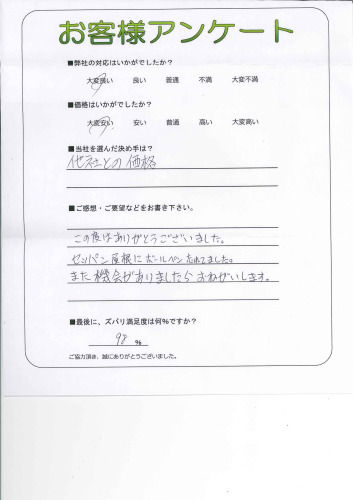 お客様アンケート
■弊社の対応はいかがでしたか？
大変良い 良い 普通 不満 大変不満
■価格はいかがでしたか？
大変安い 安い 普通 高い 大変高い
■当社を選んだ決め手は？
他社との価格
■ご感想・ご要望などをお書き下さい。
この度はありがとうございました。
ゼッパン屋根にボールペン忘れてました。
また機会がありましたらおねがいします。
■最後に、ズバリ満足度は何％ですか？
98 ％
ご協力頂き、誠にありがとうございました。